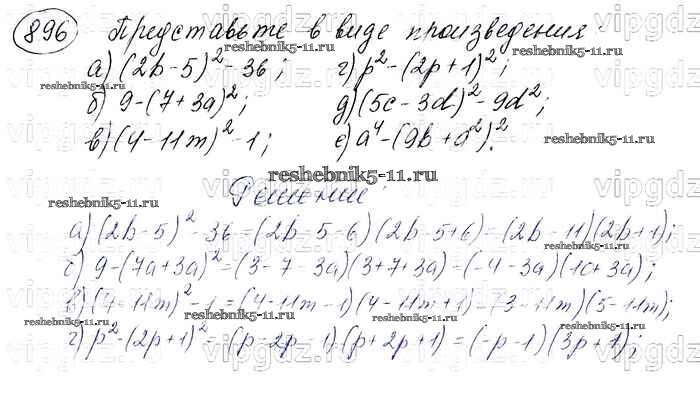 896 Представьте в виде произведения:
а) (2b-5)² - 36; г) p² - (2p+1)²;
б) 9 - (7+3a)²; д) (5c-3d)² - 9d²;
в) (4-11m)² - 1; е) a⁴ - (9b+a²)².
Решение:
а) (2b-5)² - 36 = (2b-5-6)(2b-5+6) = (2b-11)(2b+1);
б) 9-(7a+3a)² = (3-7-3a)(3+7+3a) = (-4-3a)(10+3a);
в) (4-11m)² - 1 = (4-11m-1)(4-11m+1) = (3-11m)(5-11m);
г) p² - (2p+1)² = (p-2p-1)(p+2p+1) = (-p-1)(3p+1);
reshebnik5-11.ru
vipgdz